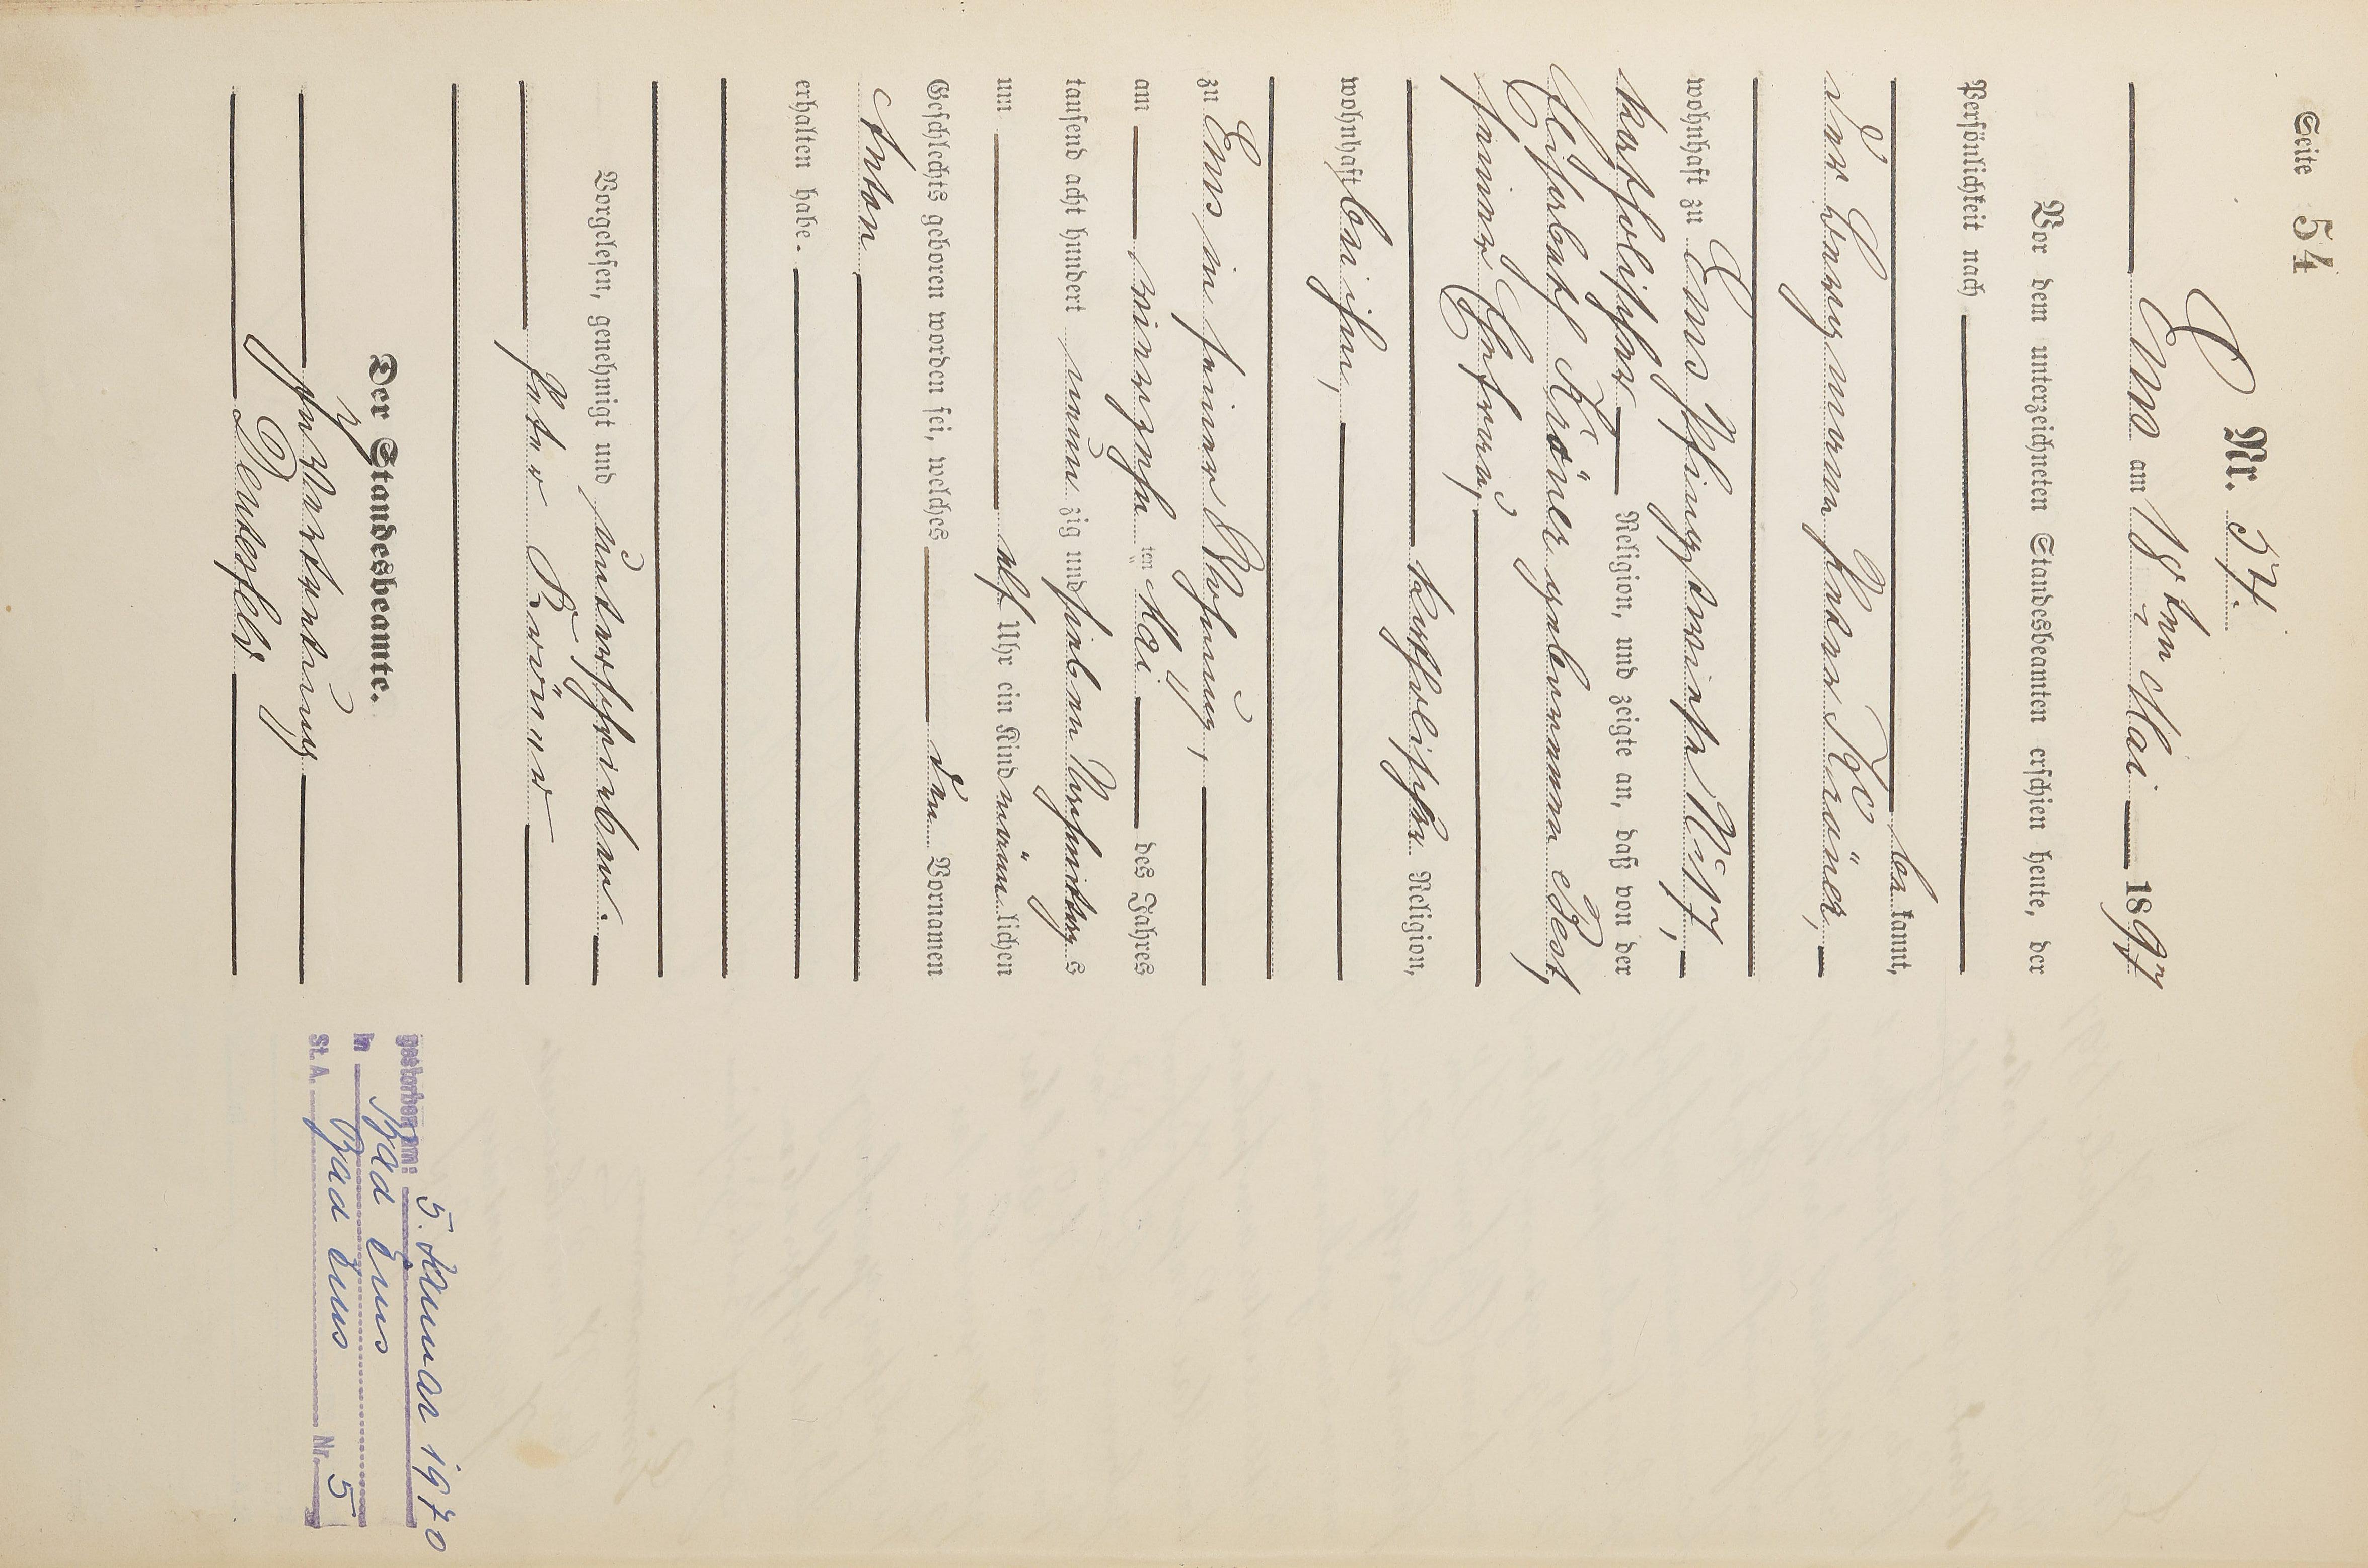 Seite 54
C Nr. 54.
Ems am 18ten Mai 1897
Vor dem unterzeichneten Standesbeamten erschien heute, der
Persönlichkeit nach
be kannt,
der Bergmann Peter Kröner,
wohnhaft zu Ems Pfingstwiese
katholischer Religion, und zeigte an, daß von der
Elisabeth Kröner geborenen Best,
seiner Ehefrau,
katholischer Religion,
wohnhaft bei ihm,
zu Ems in seiner Wohnung,
am vierzehn ten Mai des Jahres
tausend acht hundert neun zig und sieben Vormittags
um elf Uhr ein Kind männlichen
Geschlechts geboren worden sei, welches den Vornamen
Anton
erhalten habe.
Vorgelesen, genehmigt und unterschrieben.
Peter Kröner
Der Standesbeamte.
In Vertretung
gestorben am: 5. Januar 1970
in Bad Ems
St. A. Bad Ems Nr. 5